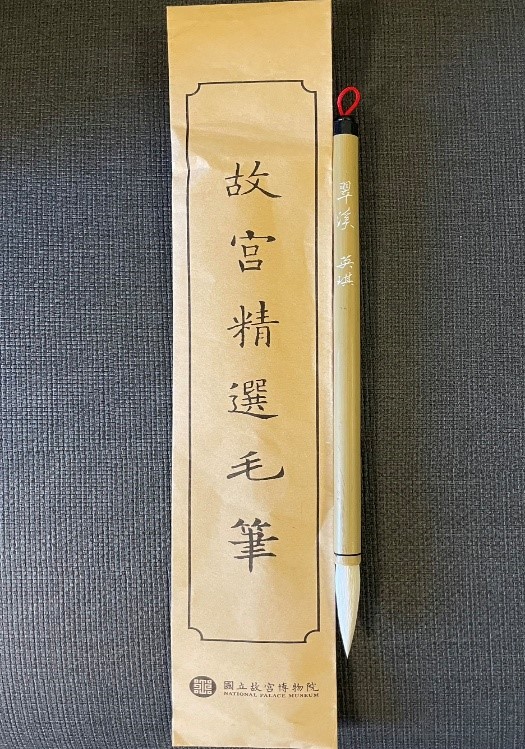 故宮精選毛筆
翠溪 英淇
國立故宮博物院
NATIONAL PALACE MUSEUM